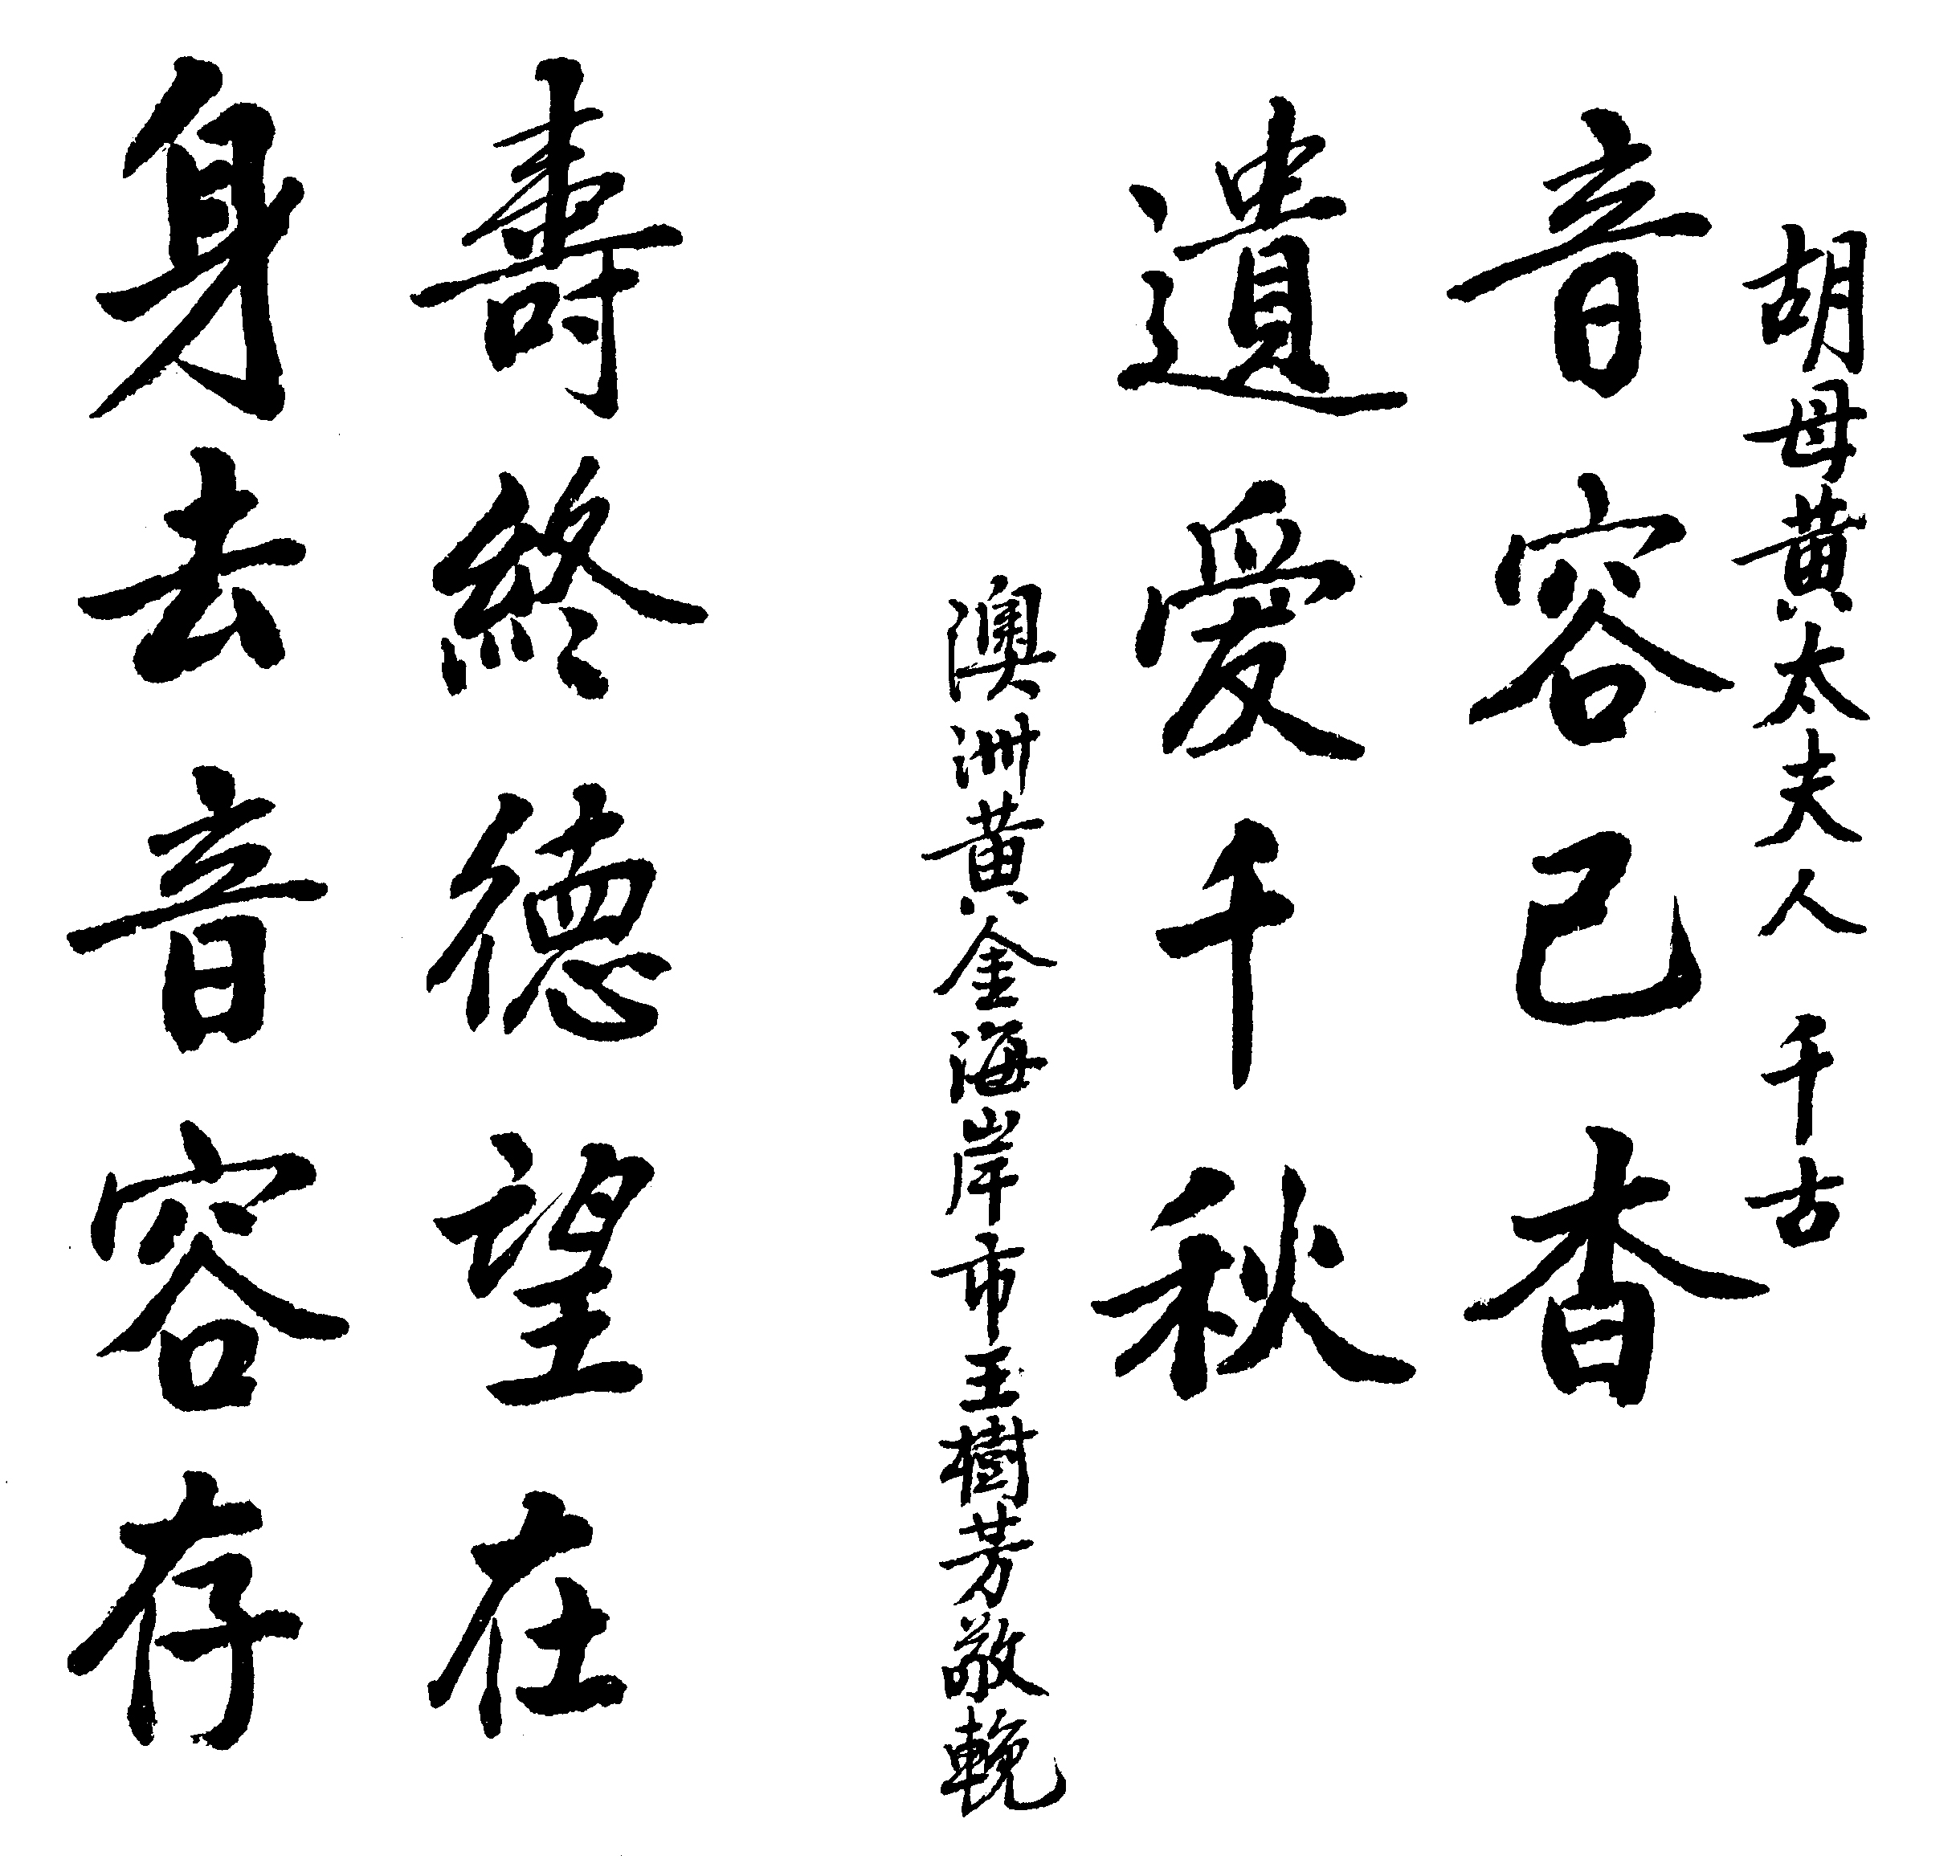 胡母黄太夫人 千古
音容已杳
遺愛千秋
澳洲黄金海岸市王樹芳敬輓
壽終德望在
身去音容存